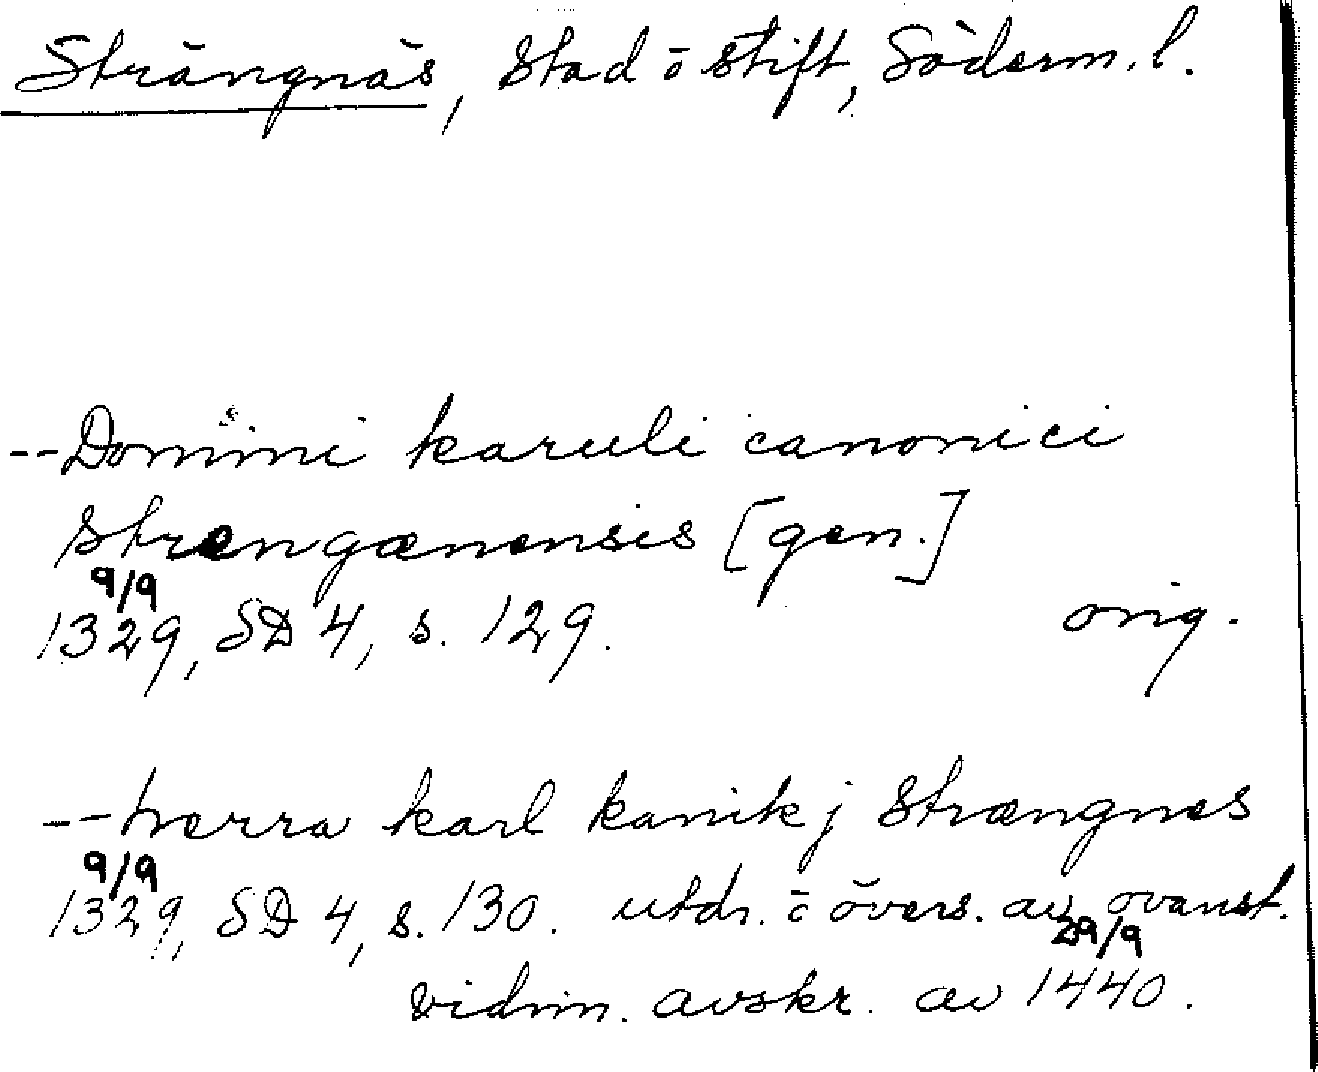 Strängnäs, stad o stift, Söderm. l.
--Domini karuli canonici
strengænensis [gen.]
9/9
1329, SD 4, s. 129. orig.
--hærra karl kanik j Strængnes
9/9
1329, SD 4, s. 130. utdr. o övers. av ovanst.
29/9
vidim. avskr. av 1440.